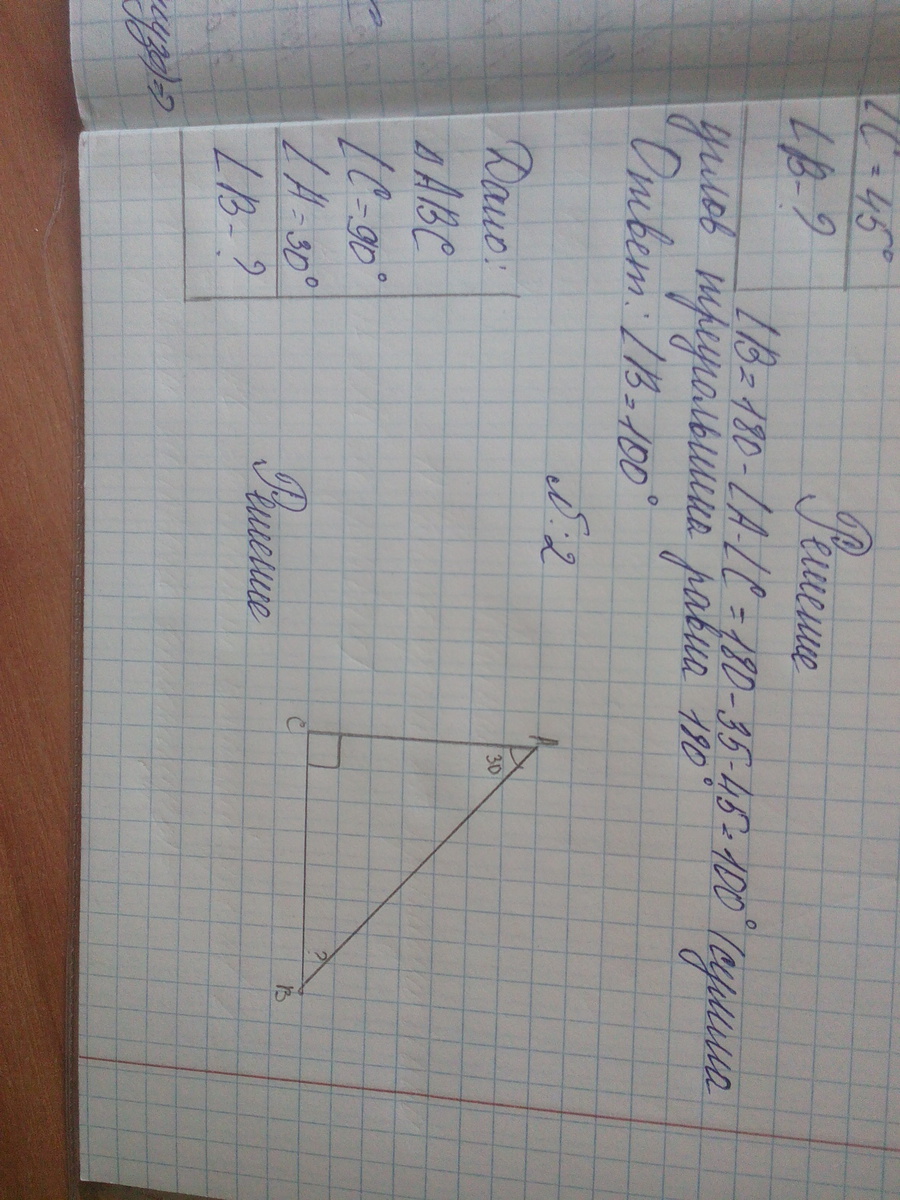 ∠C = 45°
∠B - ?
Решение
∠B = 180 - ∠A - ∠C = 180 - 35 - 45 = 100° (сумма
углов треугольника равна 180°
Ответ: ∠B = 100°
№ 2
Дано:
△ABC
∠C = 90°
∠A = 30°
∠B - ?
A
30
C
?
B
Решение